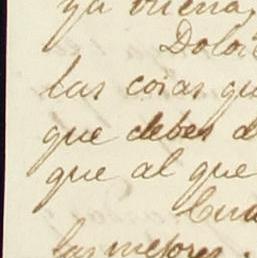 ya buena,
Dolo
las cosas qu
que deben d
que al que
las mejores.